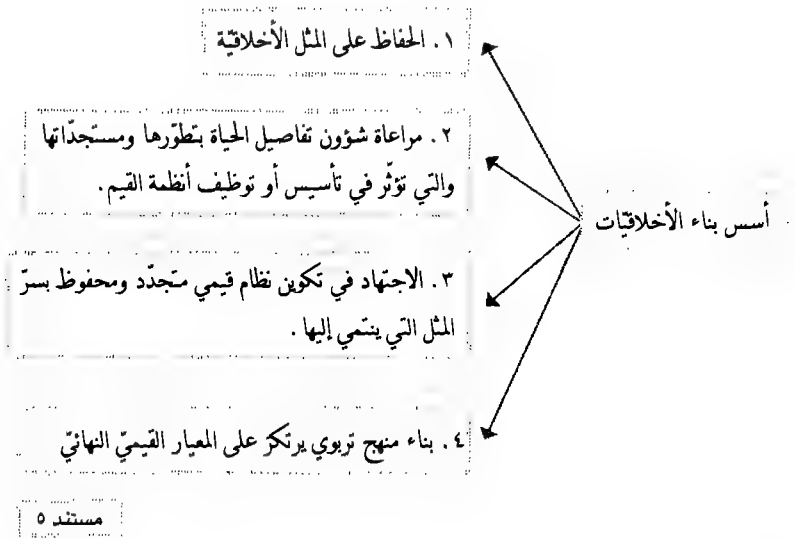 ١. الحفاظ على المثل الأخلاقيّة
٢. مراعاة شؤون تفاصيل الحياة بتطوّرها ومستجدّاتها
والتي تؤثّر في تأسيس أو توظيف أنظمة القيم.
أسس بناء الأخلاقيّات
٣. الاجتهاد في تكوين نظام قيمي متجدّد ومحفوظ بسرّ
المثل التي ينتمي إليها.
٤. بناء منهج تربوي يرتكز على المعيار القيميّ النهائيّ
مستند ٥